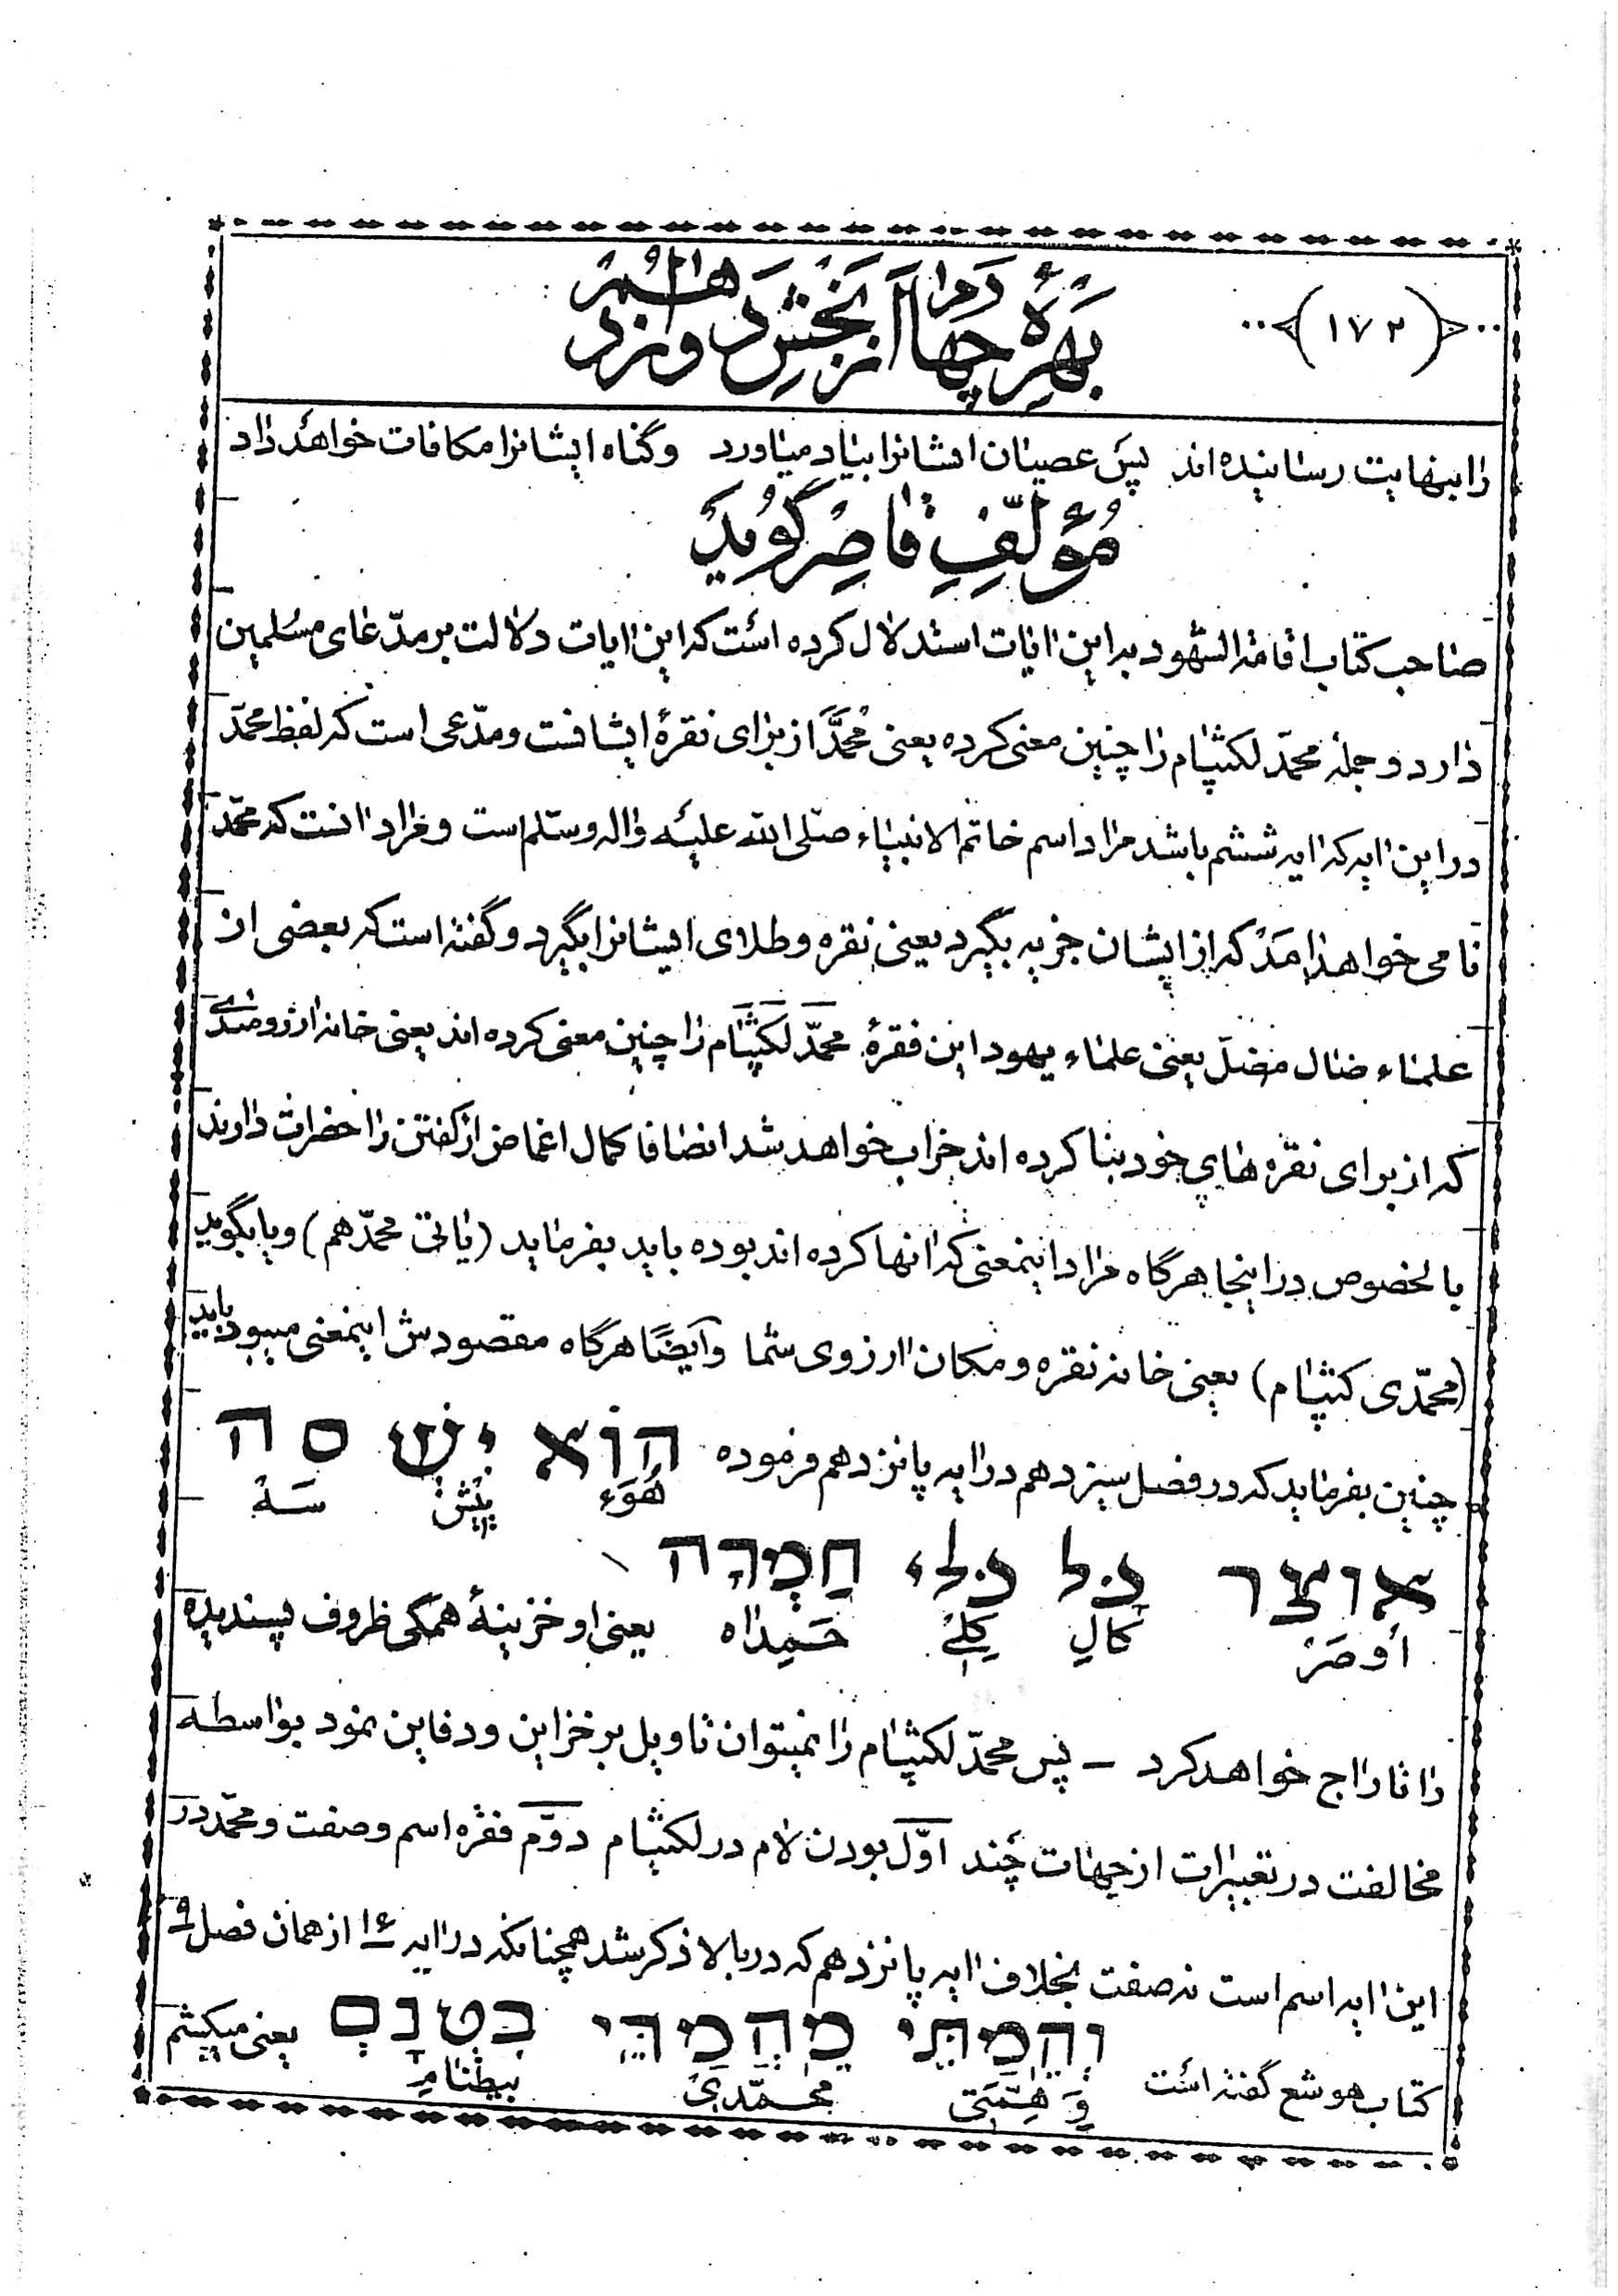 (۱۷۲)
بهرۀ چهارم از بخش دوازدهم
را بنهایت رسانیده‌اند پس عصیان ایشانرا بیاد میاورد وگناه ایشانرا مکافات خواهد داد
مُؤلّفِ قاصِر گُوید
صاحب کتاب اقامة الشهود بر این ایات استدلال کرده است که این ایات دلالت بر مدّعای مسلمین
دارد وجملۀ محمّد لکثپام را چنین معنی کرده یعنی مُحمَّد از برای نقرۀ ایشانست ومدّعی است که لفظ محمّد
در این ایه که ایه ششم باشد مراد اسم خاتم الانبیاء صلی الله علیه واله وسلم است ومراد انست که محمّد
نامی خواهد امد که از ایشان جزیه بگیرد یعنی نقره وطلای ایشانرا بگیرد وگفته است که بعضی از
علماء ضال مضلّ یعنی علماء یهود این فقرۀ محمّد لکثپام را چنین معنی کرده اند یعنی خانه ارزومندی
که از برای نقره های خود بنا کرده اند خراب خواهد شد انصافا کمال اغماض از گفتن را حضرات دارند
بالخصوص در اینجا هرگاه مراد اینمعنی که انها کرده اند بوده باید بفرماید (یاتی محمّد هم) ویا بگوید
(محمّدی کثپام) یعنی خانه نقره ومکان ارزوی شما وآیضًا هرگاه مقصودش اینمعنی میبود باید
چنین بفرماید که در فصل سیزدهم در ایه پانزدهم فرموده הוֹא יִשׁ סה
هُوَء یِش سَه
אוצר כל כלי חַמְדָה
اوصَر کالِ کِلِی حَمِداه یعنی او خزینۀ همگی ظروف پسندیده
را تاراج خواهد کرد – پس محمّد لکثپام را نمیتوان تاویل بر خزاین ودفاین نمود بواسطه
مخالفت در تعبیرات از جهات چند اوّل بودن لام در لکثپام دوّم فقره اسم وصفت ومحمّد در
این ایه اسم است نه صفت بخلاف ایه پانزدهم که در بالا ذکر شد همچنانکه در ایه ۱۶ از همان فصل ۹
کتاب هوشع گفته است וְהֵמַתִּי מַחֲמַדֵּי בִטְנָם یعنی میکشم
وَ هِمَتی محمّدی بیطنام